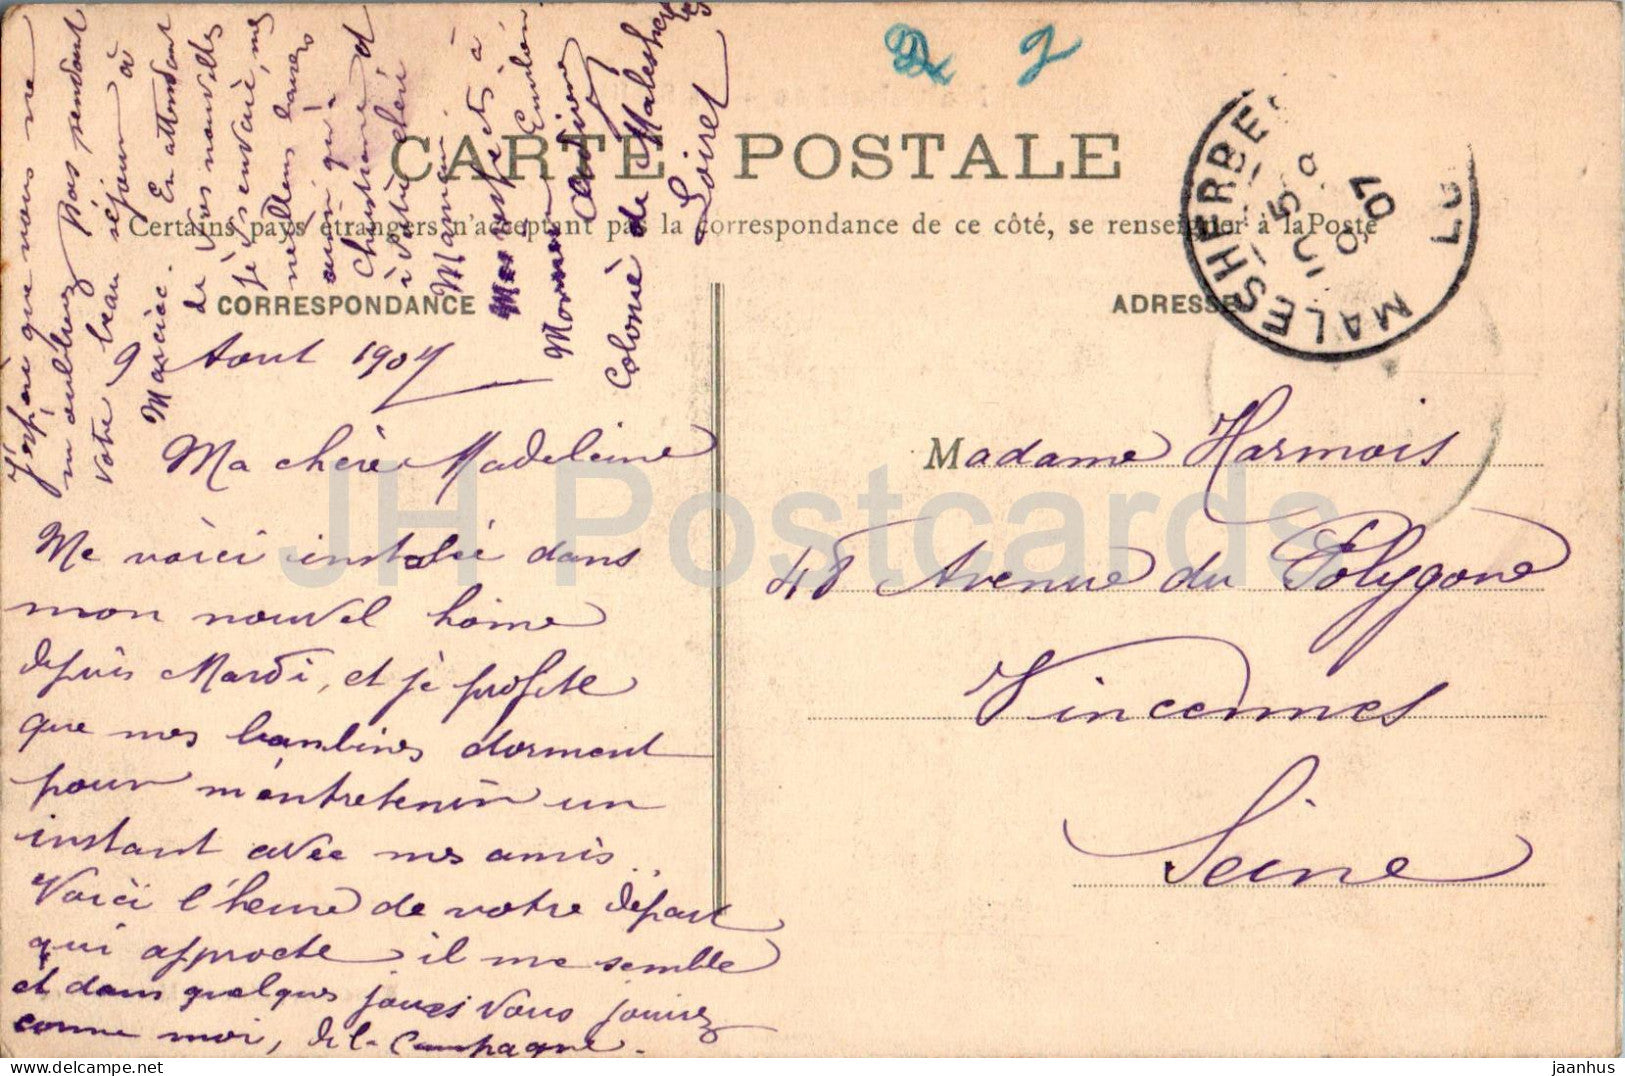 CARTE POSTALE
Certains pays étrangers n'acceptant pas la correspondance de ce côté, se renseigner à la Poste
CORRESPONDANCE
ADRESSE
9 Aout 1907
Ma chère Madeleine
Me voici installée dans
mon nouvel home
depuis Mardi, et je profite
que mes bambines dorment
pour m'entretenir un
instant avec mes amis..
Voici l'heure de votre départ
qui approche il me semble
et dans quelques jours vous jouirez
comme moi, de la Campagne.
J'espère que vous ne
m'oublierez pas pendant
votre beau séjour à
. En attendant
de vos nouvelles
je vous envoie, mes
meilleurs baisers
ainsi qu'à
Christiane et
à votre chère
Maman.
à
Emilienne
Colonie de Malesherbes
Loiret
Madame Harmois
48 Avenue du Polygone
Vincennes
Seine
MALESHERBES
07
JH Postcards
jaanhus